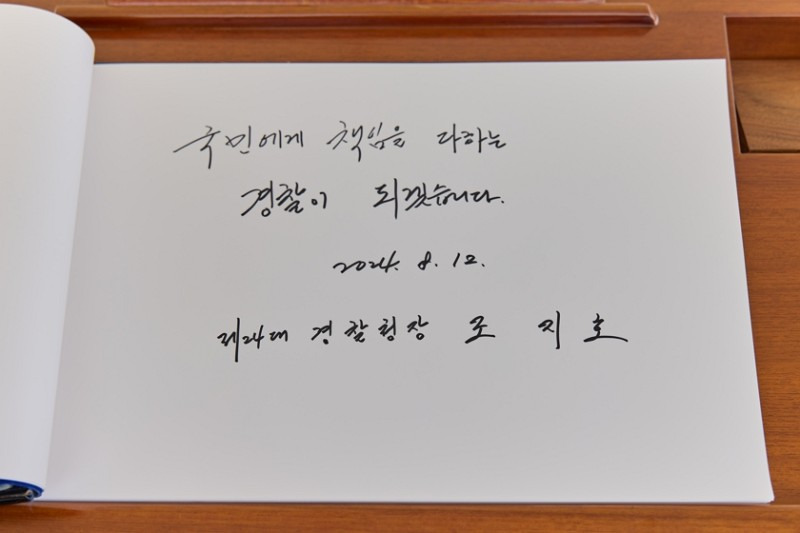 국민에게 책임을 다하는
경찰이 되겠습니다.
2024. 8. 12.
제24대 경찰청장 조 지 호